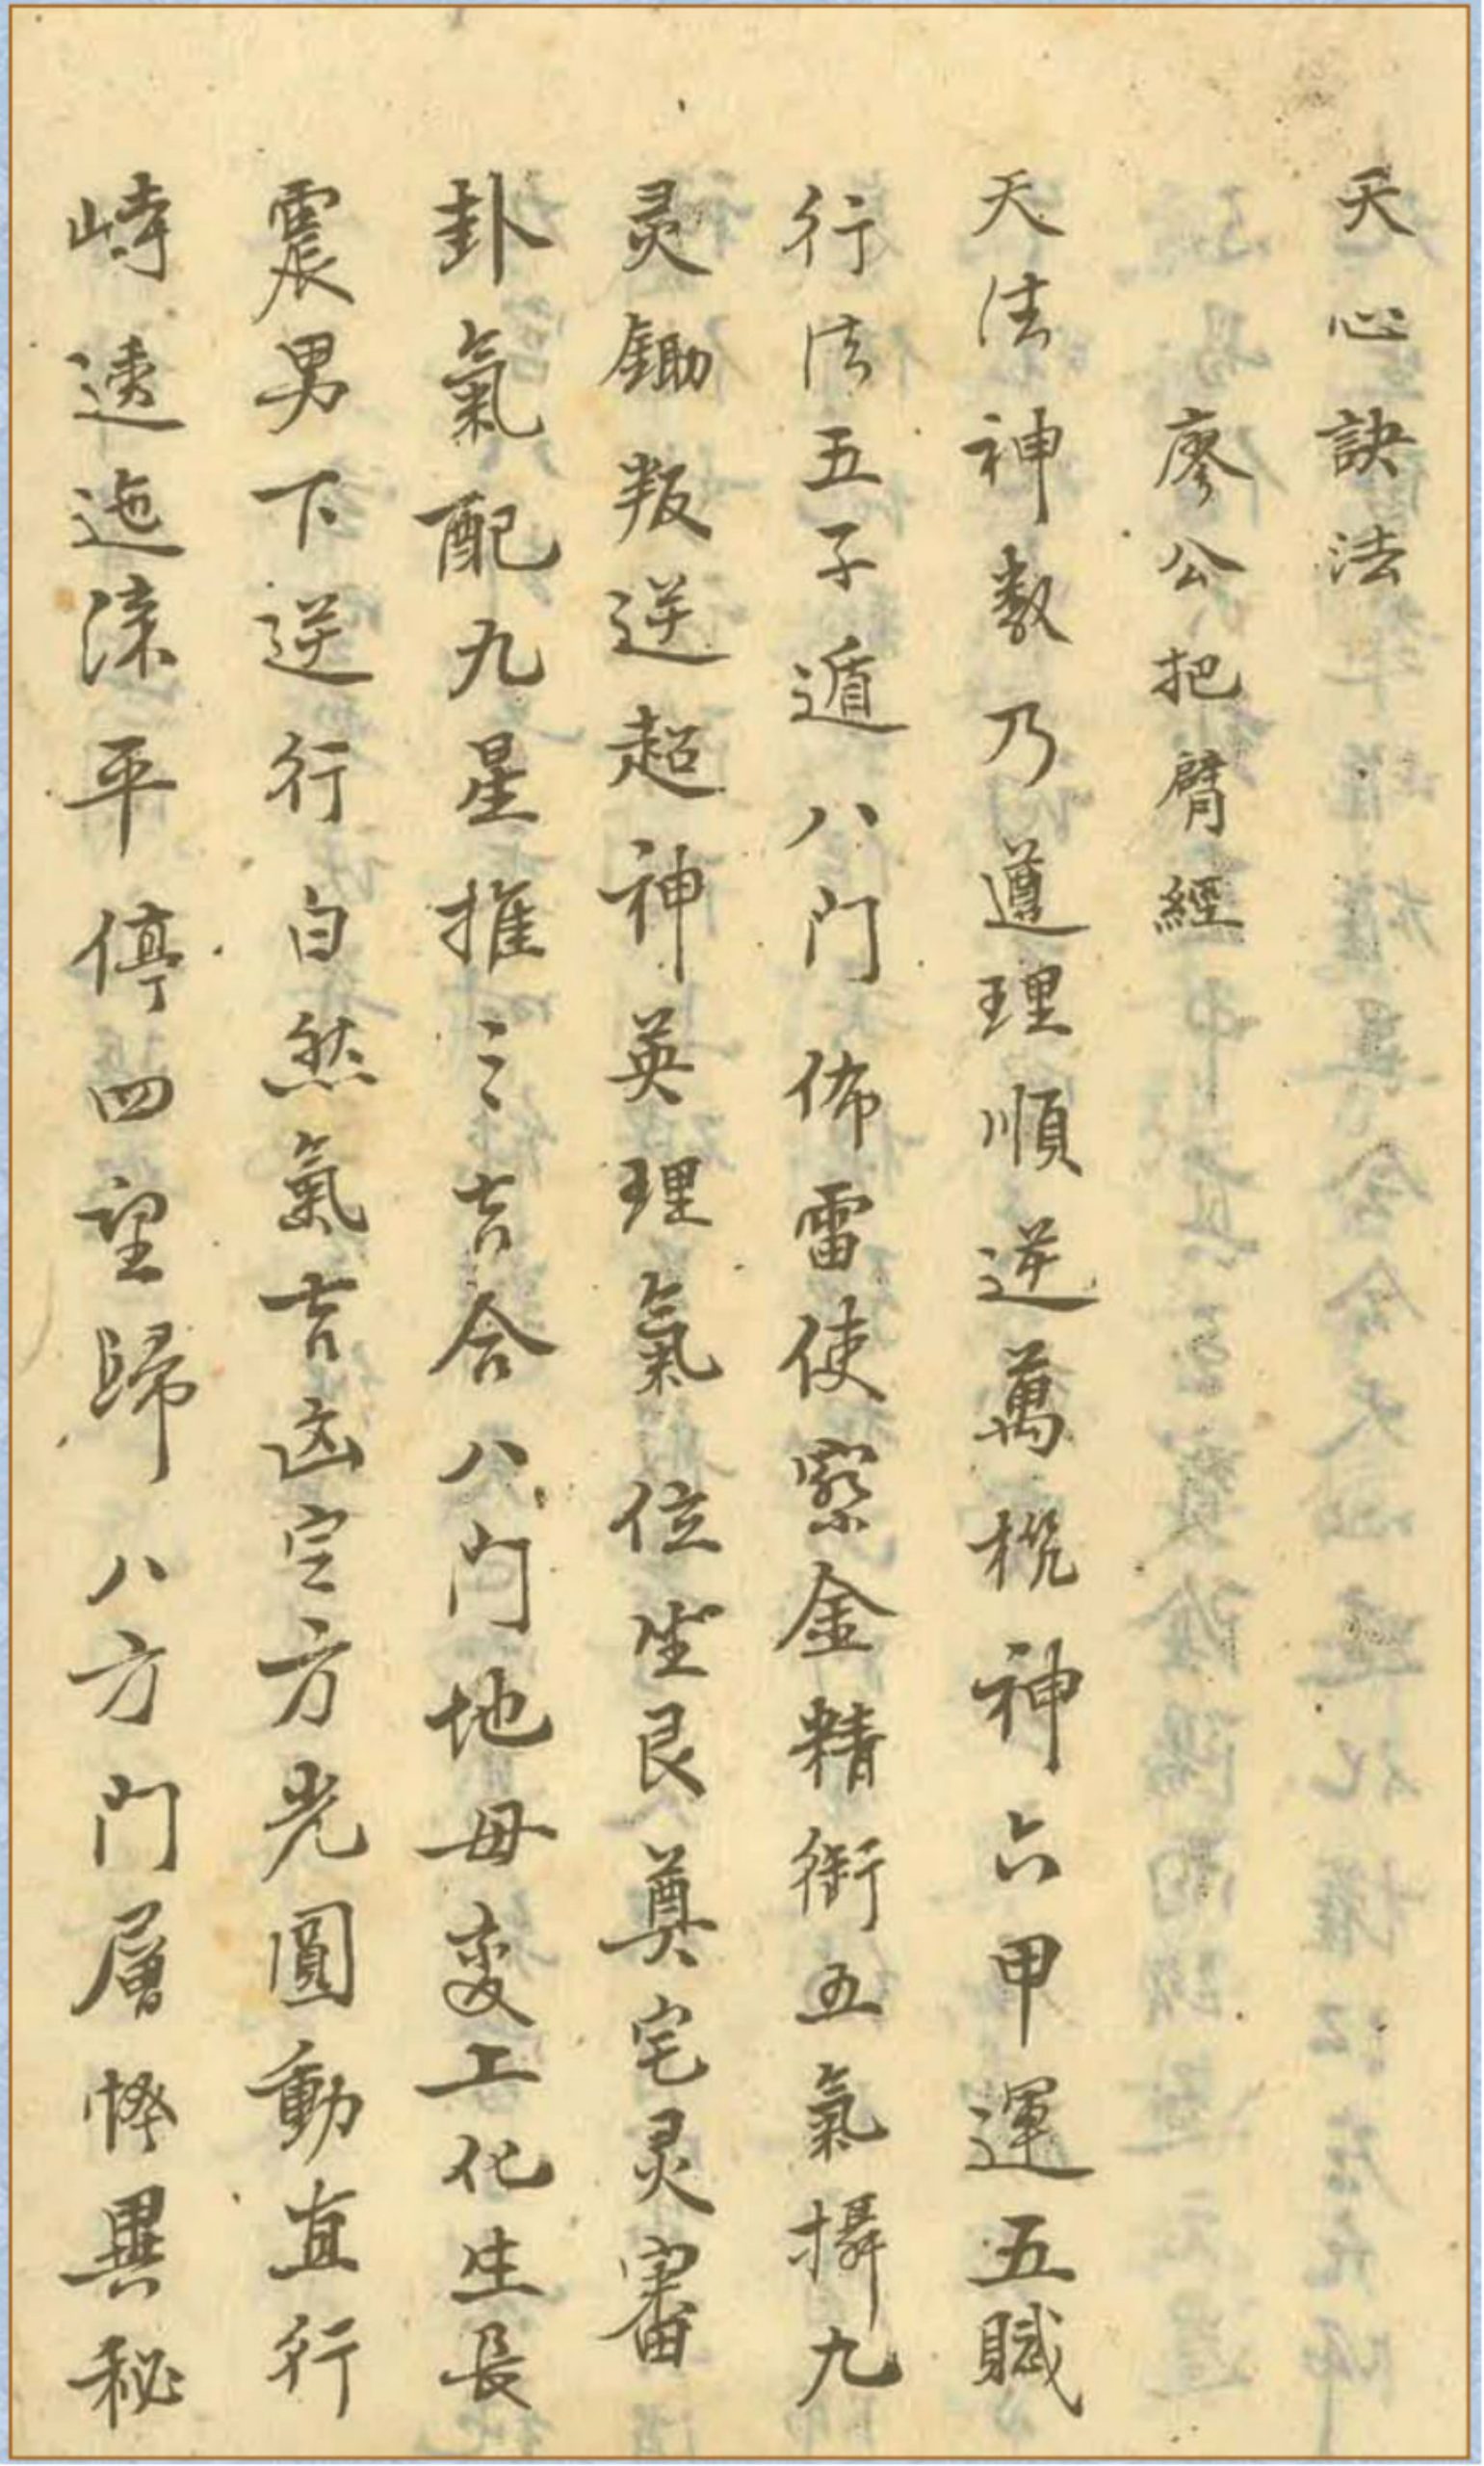 天心訣法
廖公把臂經
天法神数乃遵理順逆萬機神六甲運五賦
行法五子遁八門佈雷使察金精衔五氣攝九
灵鋤叛逆超神英理氣位坐艮奠宅灵審
卦氣配九星推三吉合八門地毋变工化生長
震男下逆行自然氣吉凶定方光圓動直行
峙透迤濚平停四望歸八方門層異秘